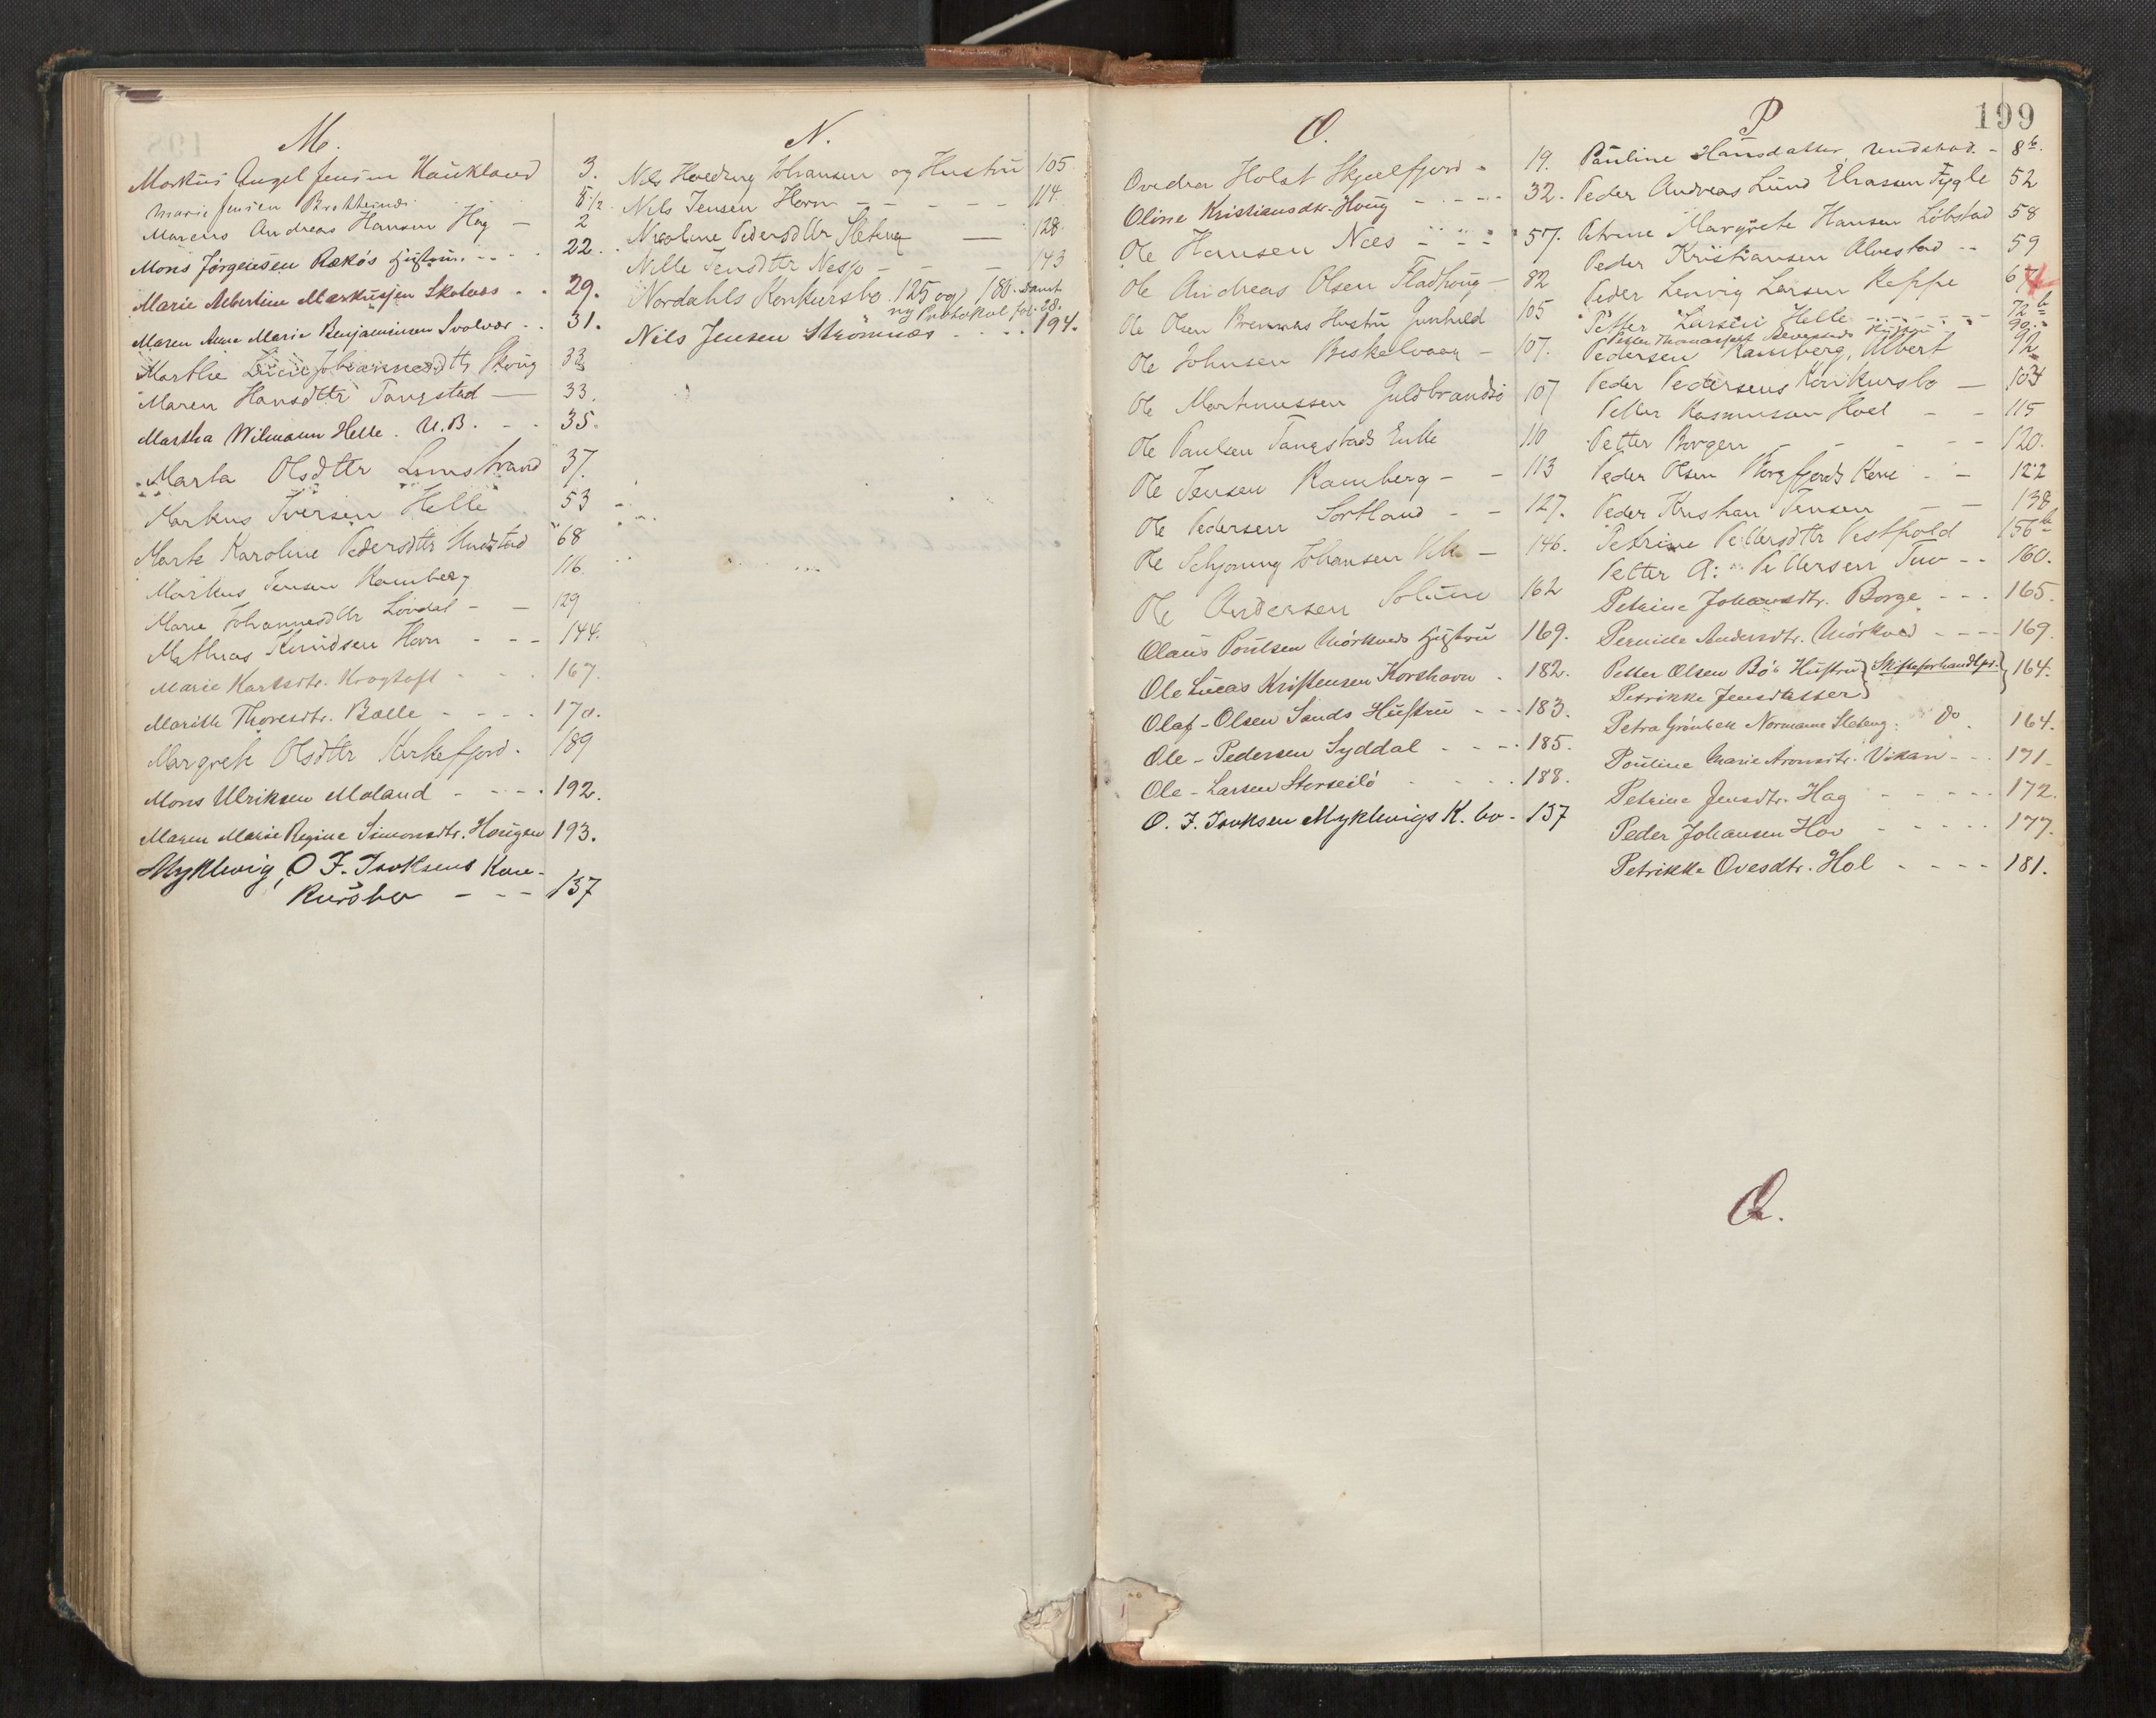 M.
Markus Angel Jensen Haukland 3.
Marie Jensen 5 1/2
Marcus Andreas Hansen Hag — 2
Mons Jørgensen Rekøs Hustru - - - 22.
Marie Albertine Markussen Skotnes - - 29.
Maren Anne Marie Benjaminsen Svolvær - - 31.
Marthe Johannesdtr 33
Maren Hansdttr Tangstad — 33.
Martha Wilmann Helle. U.B. - - 35.
Marta Olsdttr Limstrand 37.
Markus Iversen Helle 53
Marte Karoline Pedersdttr Unstad 68
Markus Jensen Ramberg 116.
Marie Johannesdttr Lindal - — 129
Mathias Knudsen Horn - - - 144.
Marie Karlsdtr. Krogtoft - - - 167.
Marith Thoresdtr. Balle - - - - 170.
Margrete Olsdttr Kirkefjord. 189
Mons Ulriksen Moland - - - - 192.
Maren Marie Regine Simonsdtr. Hougen 193.
Myklevig, O F. Isaksens Kon-
kursbo - - - 137
N.
Nils Hveding Johansen og Hustru 105
Nils Jensen Horn - - - - - 114.
Nicoline Pedersdttr Steteng — 128.
Nille Jensdttr Nesje - - - 143
Nordahls Konkursbo 125 og 180. samt
ny Protokol fol. 28.
Nils Jensen Strömnæs - - - 194.
O.
Ovedra Holst Skjælfjord - 19.
Oline Kristiansdtr. Houg - - - - 32.
Ole Hansen Næs - - - 57.
Ole Andreas Olsen Fladhoug - 82
Ole Olsen Brennas Hustru Gunhild 105
Ole Johnsen - 107.
Ole Martinussen Guldbrandsö 107
Ole Paulsen Tangstads Enke 110
Ole Jensen Ramberg - - 113
Ole Pedersen Sortland - - 127.
Ole Schjoning Johansen - 146.
Ole Andersen Solum 162
Olaus Poulsen Mörkveds Hustru 169.
Ole Lucas Kristensen Korshavn . 182.
Olaf - Olsen Sands Hustru - - - 183.
Ole - Pedersen Syddal - - - - 185.
Ole - Larsen Storseilö - - - - 188.
O. F. Isaksen Myklevigs K. bo - 137
P
199
Pauline Hansdatter, Undstad. - 8 b.
Peder Andreas Lund Eliassen Fygle 52
Petrine Margrete Hansen Löbstad 58
Peder Kristiansen Alvestad -- 59
Peder Lenvig Larsen Reppe 67
Petter Larsen Helle - - - - - 72 b
Petter Thomassen Hustru 90.
Pedersen Ramberg, Albert 92
Peder Pedersens Konkursbo — 103
Petter Rasmussen Hoel - - 115
Petter Borgen - - - - - 120.
Peder Olsen - - 122
Peder Kristian Jensen - - 138
Petrine Pettersdttr Vestfold 156 b
Petter A. Pettersen Tuv - - 160.
Petrine Johansdtr. Borge - - - 165.
Pernille Andersdtr. Mörkved - - - - 169.
Petter Olsen Bö's Hustru } Skifteforhandlgr. } 164.
Petrikke Jensdatter }
Petra Grönbek Normann Steteng. do. 164.
Pauline Marie Aronsdtr. Vikan - - - 171.
Petrine Jensdtr. Hag - - - - - 172.
Peder Johansen Hov - - - - - 177.
Petrikke Ovesdtr. Hol - - - - 181.
Q.